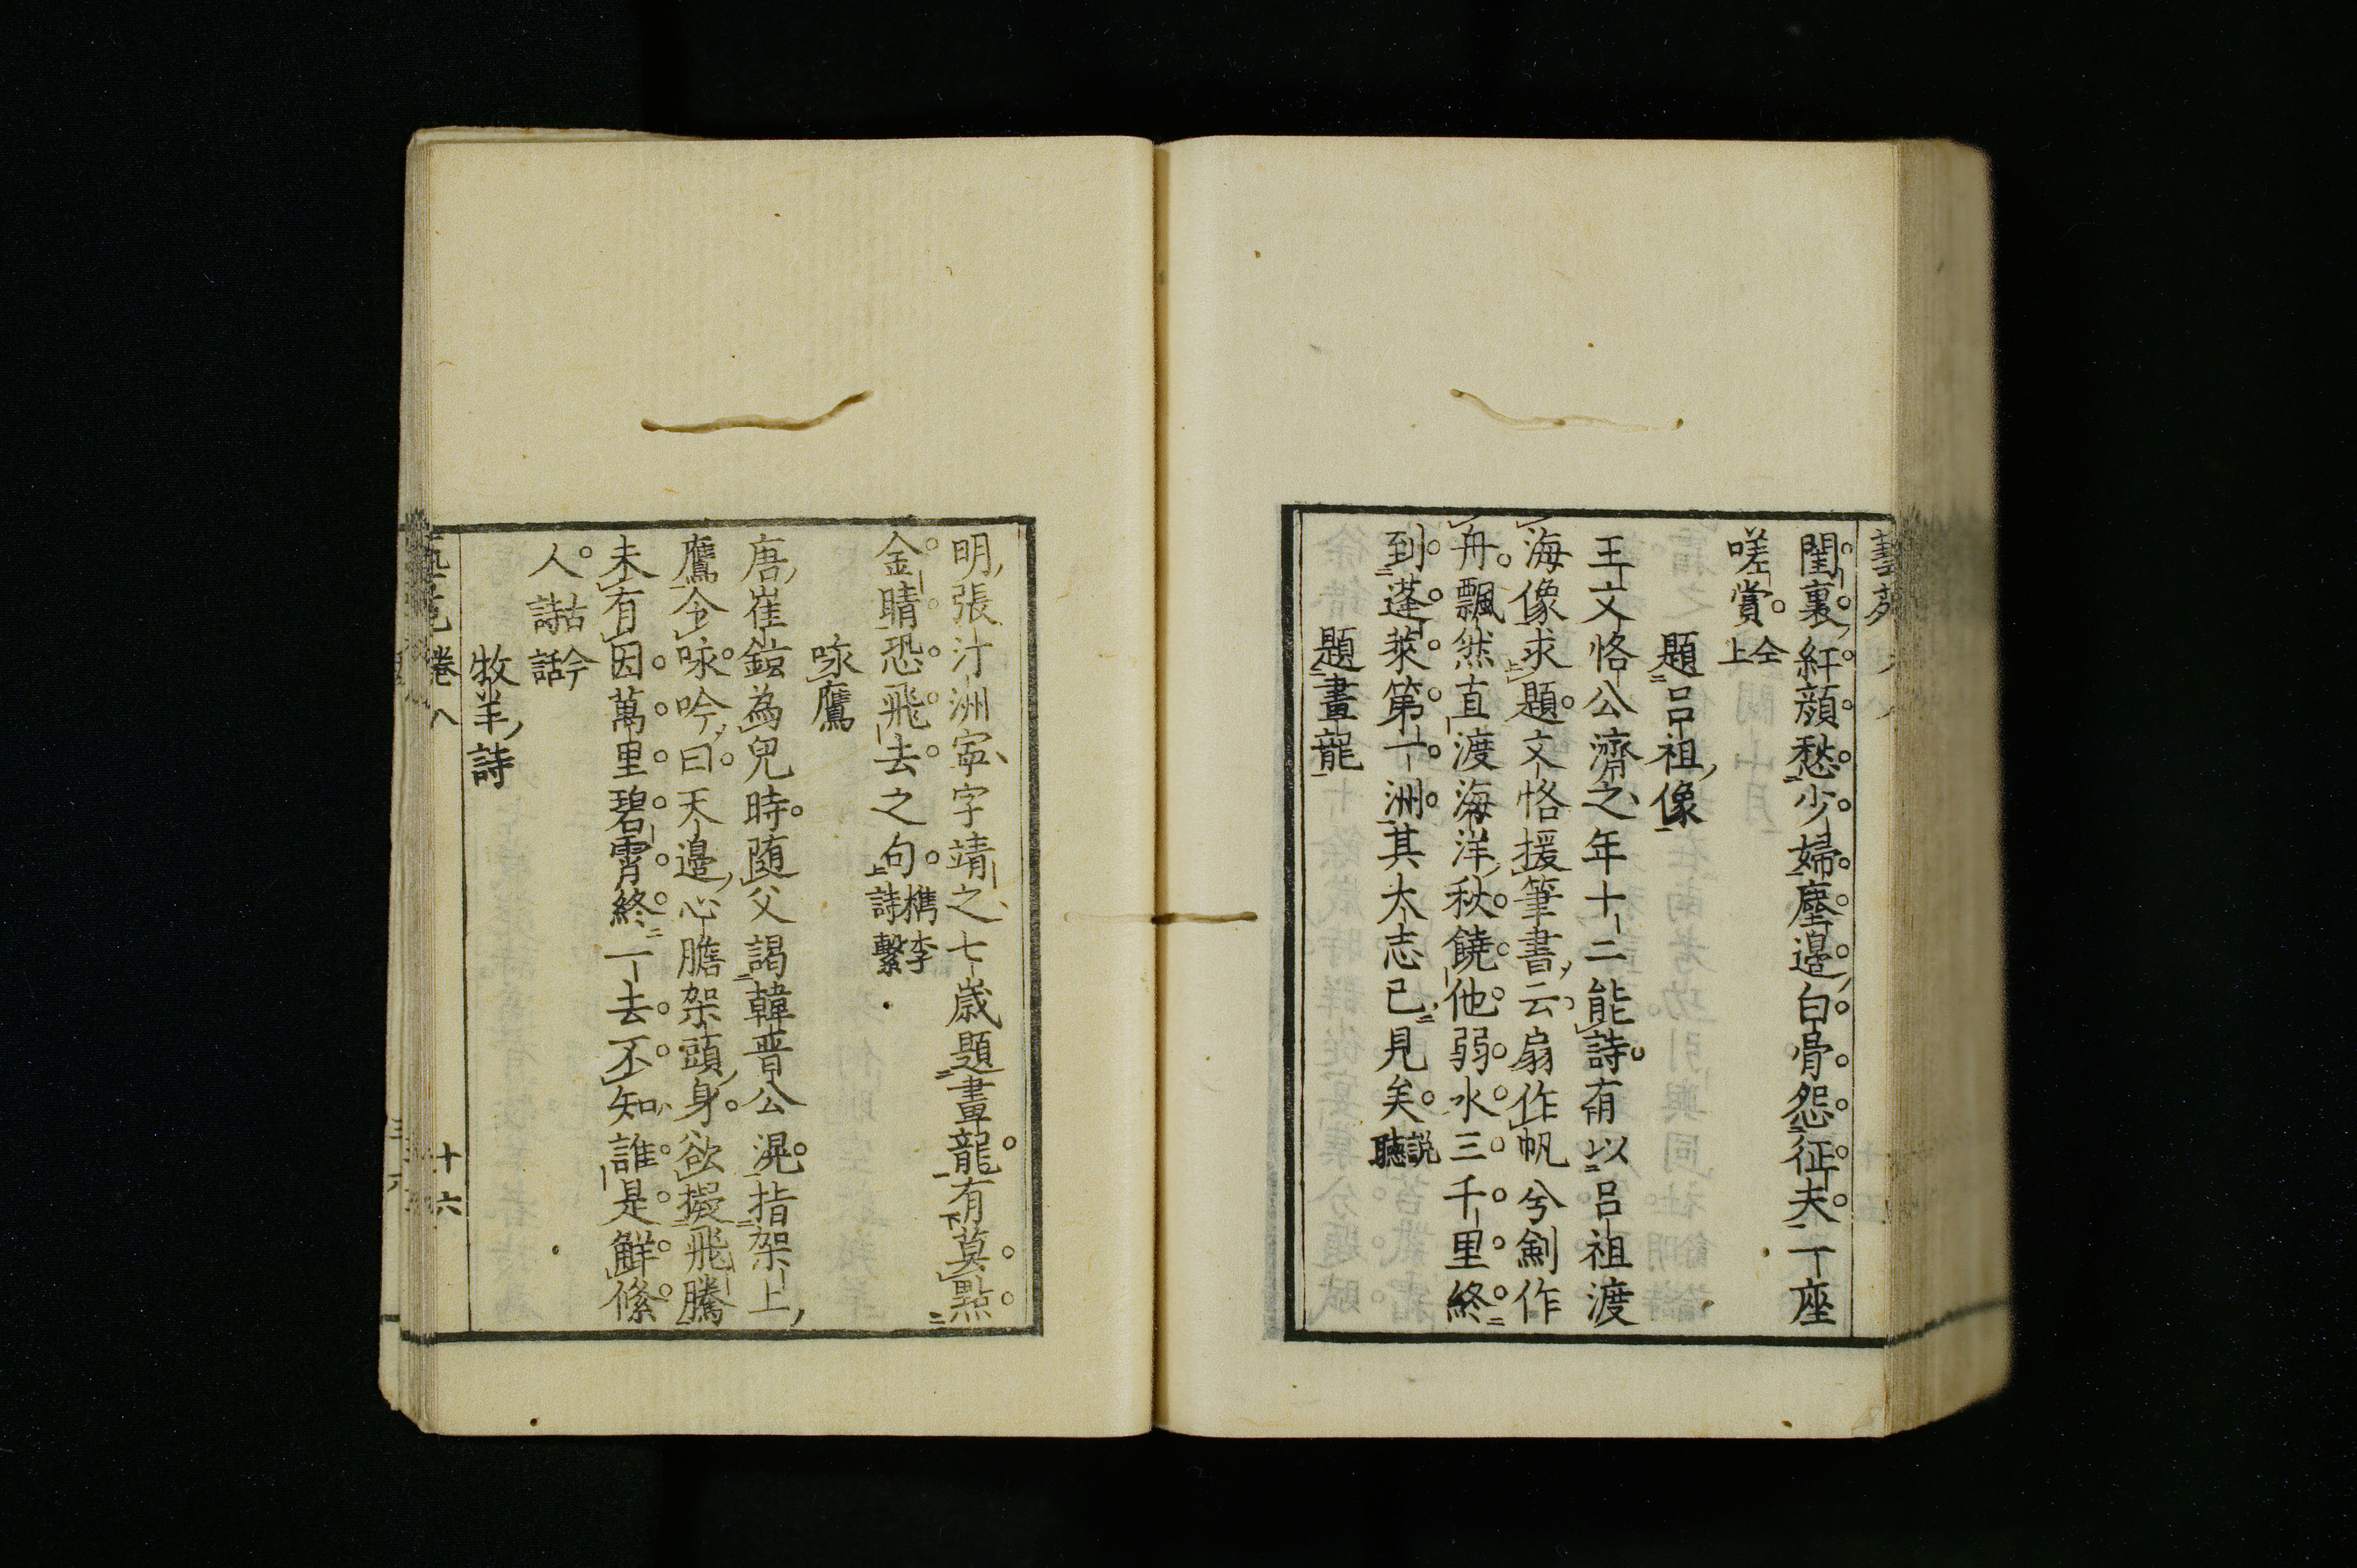 閨裏紅顔愁少婦塵邊白骨怨征夫一座
嗟賞仝上
題呂祖像
王文恪公濟之年十二能詩有以呂祖渡
海像求題文恪援筆書云扇作帆兮劍作
舟飄然直渡海洋秋饒他弱水三千里終
到蓬萊第一洲其大志已見矣説聴
題畫龍
明張汁洲寧字靖之七歳題畫龍有莫點
金睛恐飛去之句檇李詩繫
咏鷹
唐崔鉉為兒時随父謁韓晋公滉指架上
鷹令咏吟曰天邊心膽架頭身欲擬飛騰
未有因萬里碧霄終一去不知誰是觧絛
人古今詩話
牧羊詩
卷八 十六